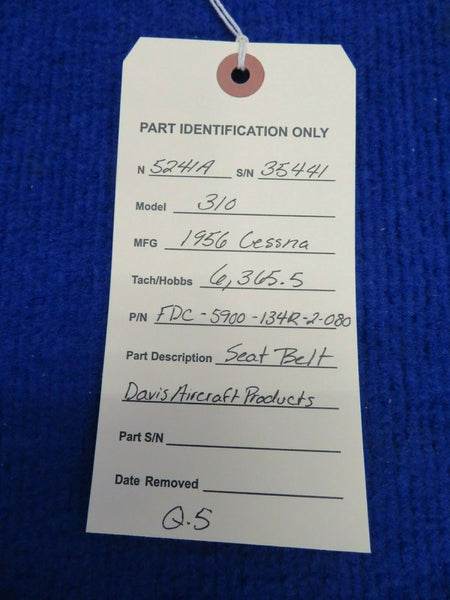 PART IDENTIFICATION ONLY
N 5241A S/N 35441
Model 310
MFG 1956 Cessna
Tach/Hobbs 6,365.5
P/N FDC-5900-134R-2-080
Part Description Seat Belt
Davis Aircraft Products
Part S/N
Date Removed
Q.5